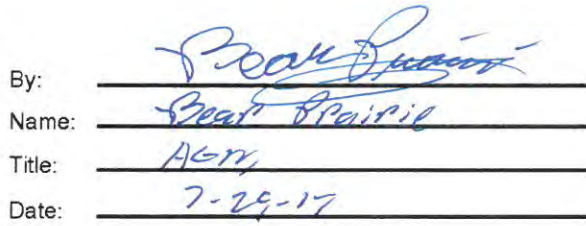 By: Bear Prairie
Name: Bear Prairie
Title: AGM,
Date: